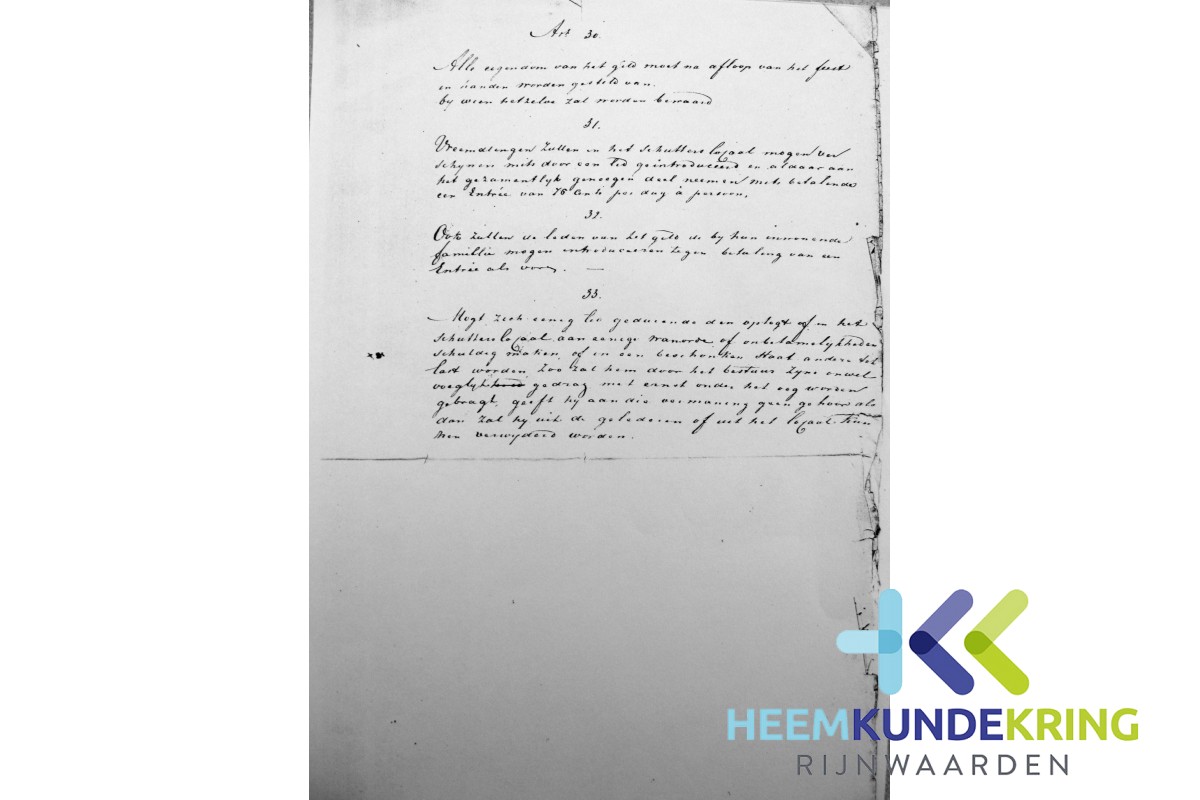 Art 30.
Alle eigendom van het gild moet na afloop van het feest
in handen worden gesteld van.
by wien hetzelve zal worden bewaard
31.
Vreemdlengen zullen in het schutters lojaal mogen ver
schynen mits door een Lid geintroduceerd en aldaar aan
het gezamentlyk genoegen deel neemen mits betalende
een Entrée van 75 Cents per dag à persoon.
32.
Ook zullen de leden van het gild de by hun innonende
familie mogen introduceeren tegen betaling van een
Entrée als voren. —
33.
Mogt zich eenig lid gedurende den optogt of in het
schutters lojaal aan eenige wanorde of onbetamelykheden
schuldig maken, of in een beschonken staat andere tot
last worden, zoo zal hem door het bestuur zyne onwel
voeglyk gedrag met ernst onder het oog worden
gebragt, geeft hy aan die vermaning geen gehoor als
dan zal hy uit de gelederen of uit het lojaal kun
nen verwyderd worden.
HEEMKUNDEKRING
RIJNWAARDEN